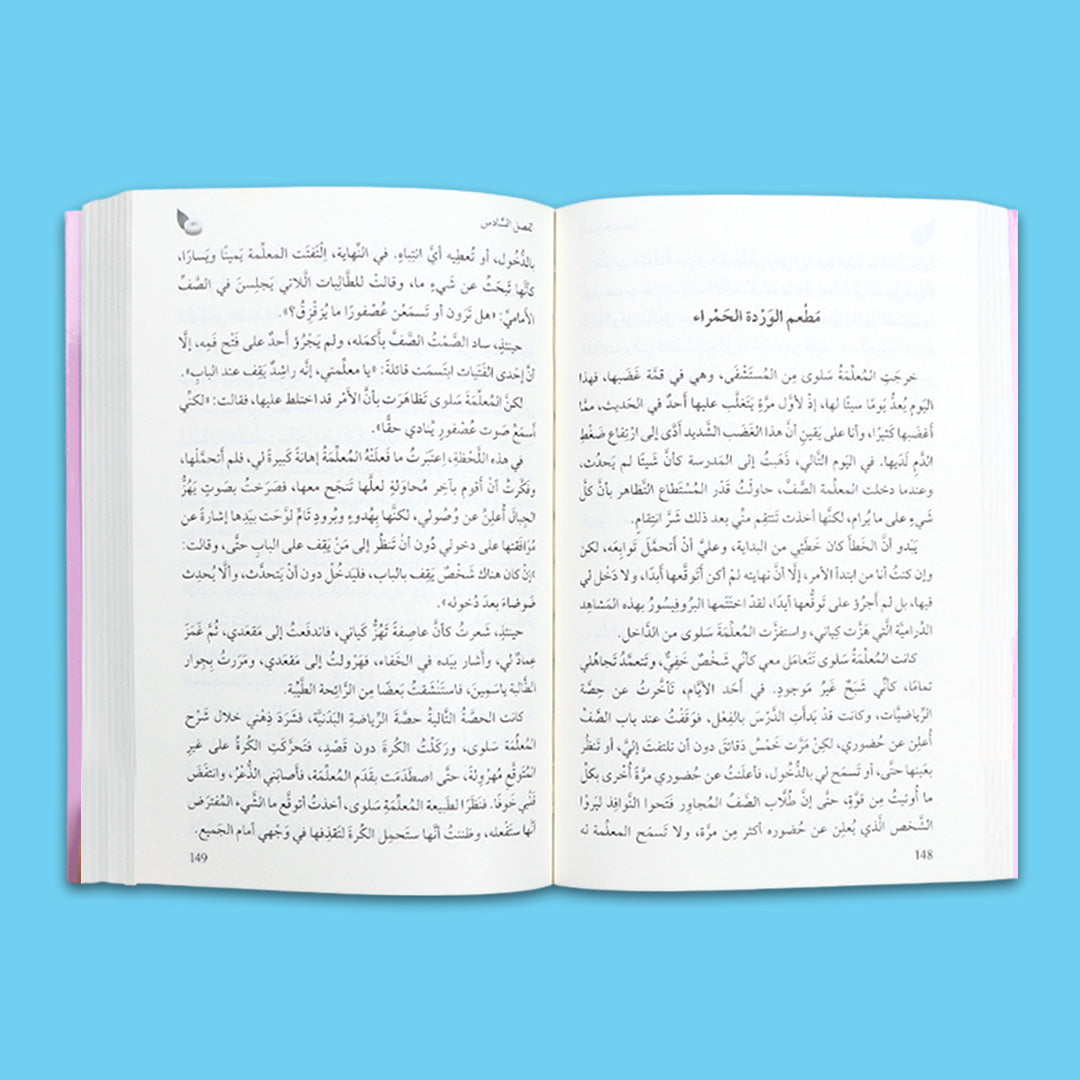 مَطْعم الوَرْدة الحَمْراء
خرجَتِ المُعلِّمَةُ سَلوى مِن المُسْتَشْفَى، وهي في قمَّة غَضَبها، فهذا
اليَوْم يُعدُّ يَومًا سيئًا لها، إذْ لأوَّل مرَّةٍ يَتَغَلَّب عليها أحدٌ في الحَديث، ممَّا
أغضَبها كَثيرًا، وأنا على يَقينٍ أنَّ هذا الغَضَب الشَّديد أدَّى إلى ارْتِفاع ضَغْطِ
الدَّمِ لَدَيها. في اليَوم التَّالي، ذَهَبتُ إلى المَدرسة كأنَّ شَيئًا لم يَحدُث،
وعندما دخلت المعلِّمة الصَّفَّ، حاولْتُ قَدْر المُسْتَطاع التَّظاهر بأنَّ كلَّ
شَيءٍ على ما يُرام، لكنَّها أخذت تَنتقِم منِّي بعد ذلك شَرَّ انتِقامٍ.
يَبْدو أنَّ الخَطأَ كان خَطَئِي من البداية، وعليَّ أنْ أتحمَّل تَوابِعَه، لكن
وإن كنتُ أنا من ابتدأ الأمر، إلَّا أنَّ نهايته لمْ أكن أتَوقَّعها أبدًا، ولا دَخْل لي
فيها، بل لم أجرُؤ على تَوقُّعها أبدًا، لقدْ اختَتَمها البرُوفِيسُورُ بهذه المَشاهِد
الدِّراميَّة الَّتي هَزَّت كِياني، واستفزَّت المُعلِّمَةَ سَلوى من الدَّاخل.
كانت المُعلِّمَةُ سَلوى تَتَعامَل معي كأنِّي شَخْصٌ خَفِيٌّ، وتَتعمَّدُ تَجاهُلي
تمامًا، كأنِّي شبَحٌ غَيرُ مَوجودٍ. في أحَد الأيَّام، تَأخَّرتُ عن حِصَّة
الرِّياضيَّات، وكانت قدْ بَدأتِ الدَّرْسَ بالفِعْل، فوَقَفْتُ عند باب الصَّفِّ
أُعلِن عن حُضوري، لكنْ مرَّت خَمْسُ دَقائقَ دون أن تلتفتَ إليَّ، أو تَنظُر
بعَينها حتَّى، أو تَسمَح لي بالدُّخول، فأعلَنتُ عن حُضوري مرَّةً أُخرى بكلِّ
ما أُوتيتُ مِن قوَّةٍ، حتَّى إنَّ طُلَّاب الصَّفِّ المُجاوِر فَتَحوا النَّوافِذ ليَرَوْا
الشَّخص الَّذي يُعلِن عن حُضوره أكثر مِن مرَّة، ولا تَسمَح المعلِّمة له
148
الفصل السَّادس
بالدُّخُول، أو تُعطِيه أيَّ انتِباهٍ. في النِّهاية، اِلْتَفتَت المعلِّمة يَمينًا ويَسارًا،
كأنَّها تَبحَثُ عن شَيءٍ ما، وقالتْ للطَّالِبات الَّلاتي يَجلِسنَ في الصَّفِّ
الأماميِّ: «هل تَرَون أو تَسمَعْن عُصْفورًا ما يُزَقْزِقُ؟».
حينئذٍ، ساد الصَّمْتُ الصَّفَّ بأكمَله، ولم يَجْرُؤْ أحدٌ على فَتْح فَمِه، إلَّا
أنَّ إحْدى الفَتَيات ابتَسمَت قائلةً: «يا معلِّمتي، إنَّه راشِدٌ يَقِف عند البابِ».
لكنَّ المُعلِّمَةَ سَلوى تَظاهَرَت بأنَّ الأَمْر قد اختلط عليها، فقالت: «لكنِّي
أسمَعُ صَوت عُصْفورٍ يُنادي حقًّا».
في هذه اللَّحْظةِ، اِعتَبَرتُ ما فعَلَتْهُ المُعلِّمَةُ إهانةً كَبيرةً لي، فلم أتحمَّلها،
وفكَّرتُ أنْ أقومَ بآخِرِ مُحاوَلةٍ لعلَّها تَنجَح معها، فصَرَختُ بصَوتٍ يَهُزُّ
الجِبالَ أُعلِنُ عن وُصُولي، لكنَّها بهُدوءٍ وبُرودٍ تَامٍّ لوَّحَت بيَدِها إشارةً عن
مُوَافَقتها على دخولي دُون أنْ تَنظُر إلى مَنْ يَقِف على البابِ حتَّى، وقالت:
«إنْ كان هناك شَخْصٌ يَقِف بالباب، فليَدخُلْ دون أنْ يَتحدَّث، وألَّا يُحدِث
ضَوضاءَ بعدَ دُخوله».
حينئذٍ، شَعرتُ كأنَّ عاصِفةً تَهُزُّ كَياني، فاندفَعتُ إلى مَقعَدي، ثُمَّ غَمَزَ
عِمادٌ لي، وأشار بيَدِه في الخَفاء، فهَرْوَلتُ إلى مَقعَدي، ومَرَرتُ بجِوار
الطَّالبة ياسَمِينَ، فاستَنْشَقتُ بَعضًا مِن الرَّائِحة الطَّيِّبة.
كانت الحصَّةُ التَّاليةُ حصَّةَ الرِّياضةِ البَدَنيَّة، فشَرَدَ ذِهْني خلال شَرْح
المُعلِّمة سَلوى، ورَكَلْتُ الكُرةَ دون قَصْدٍ، فتَحرَّكَتِ الكُرةُ على غَيرِ
المُتوَقَّعِ مُهَرْوِلةً، حتَّى اصطَدَمَت بقَدَم المُعلِّمة، فأصابَني الذُّعْرُ، وانتَفَضَ
قَلْبي خَوفًا. فنَظَرًا لطَبيعة المُعلِّمةِ سَلوى، أخذتُ أتوقَّع ما الشَّيء المُفْتَرَض
أنَّها ستَفْعله، وظَننتُ أنَّها ستَحمِل الكُرةَ لتَقذِفها في وَجْهي أمام الجَميع.
149